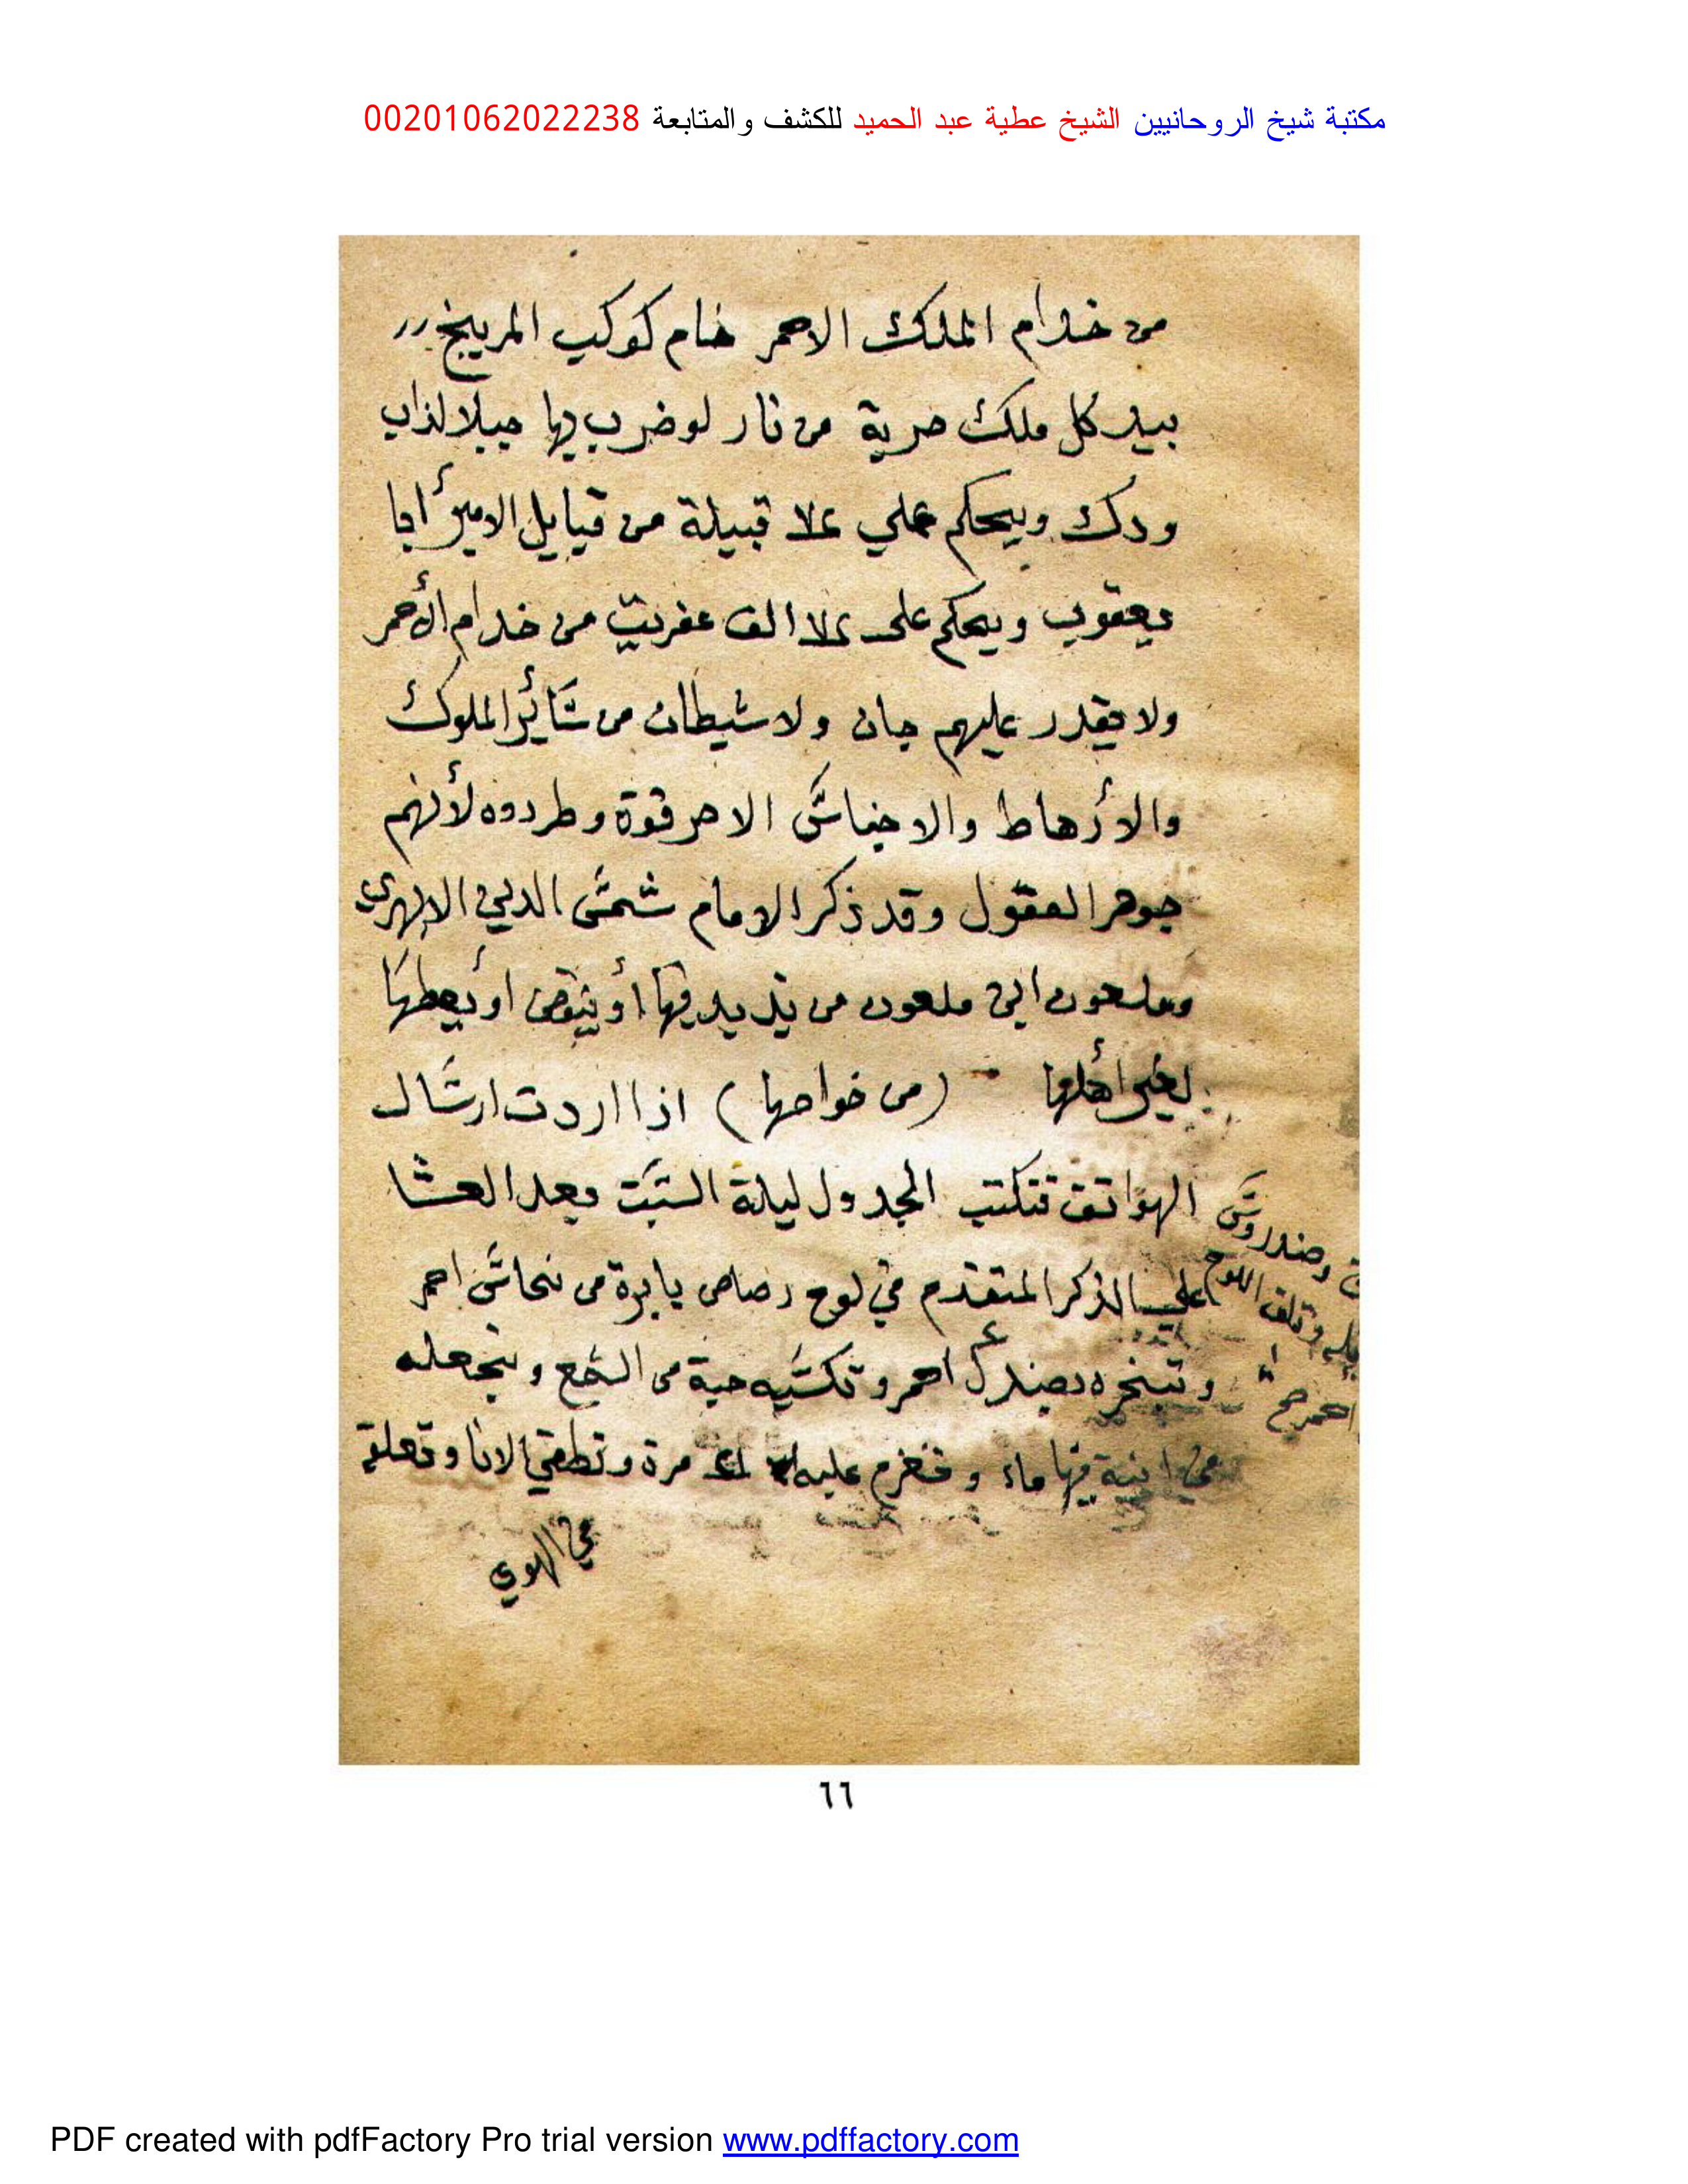 مكتبة شيخ الروحانيين الشيخ عطية عبد الحميد للكشف والمتابعة 00201062022238
من خدام الملك الاحمر خام كوكب المريخ
بيد كل ملك حربة من نار لو ضرب بها جبلا لذاب
ودك ويحكم علي علا قبيلة من قبايل الامير أبا
يعقوب ويحكم على علا الف عفريت من خدام الأحمر
ولا يقدر عليهم جان ولا شيطان من سَائر الملوك
والأرهاط والاجناسَ الا حرقوة وطردوه لأنهم
جوهر العقول وقد ذكر الامام شمسَ الدين
ملعون من فيها أو ينقص او يعطها
لغير أهلها (من خواصها) اذا اردت ارسَال
الهواتف تكتب الجدول ليلة السَبت بعد العشا
علي الذكر المتقدم في لوح رصاص بابرة من نحاسَ احمر
وتبخره بصندل احمر و حبة من الشمع وتجعله
في انية فيها ماء و عليه مرة و الانا وتعلقه
في الهوي
وصندروسَ
وتلف اللوح
احمر
٦٦
PDF created with pdfFactory Pro trial version www.pdffactory.com